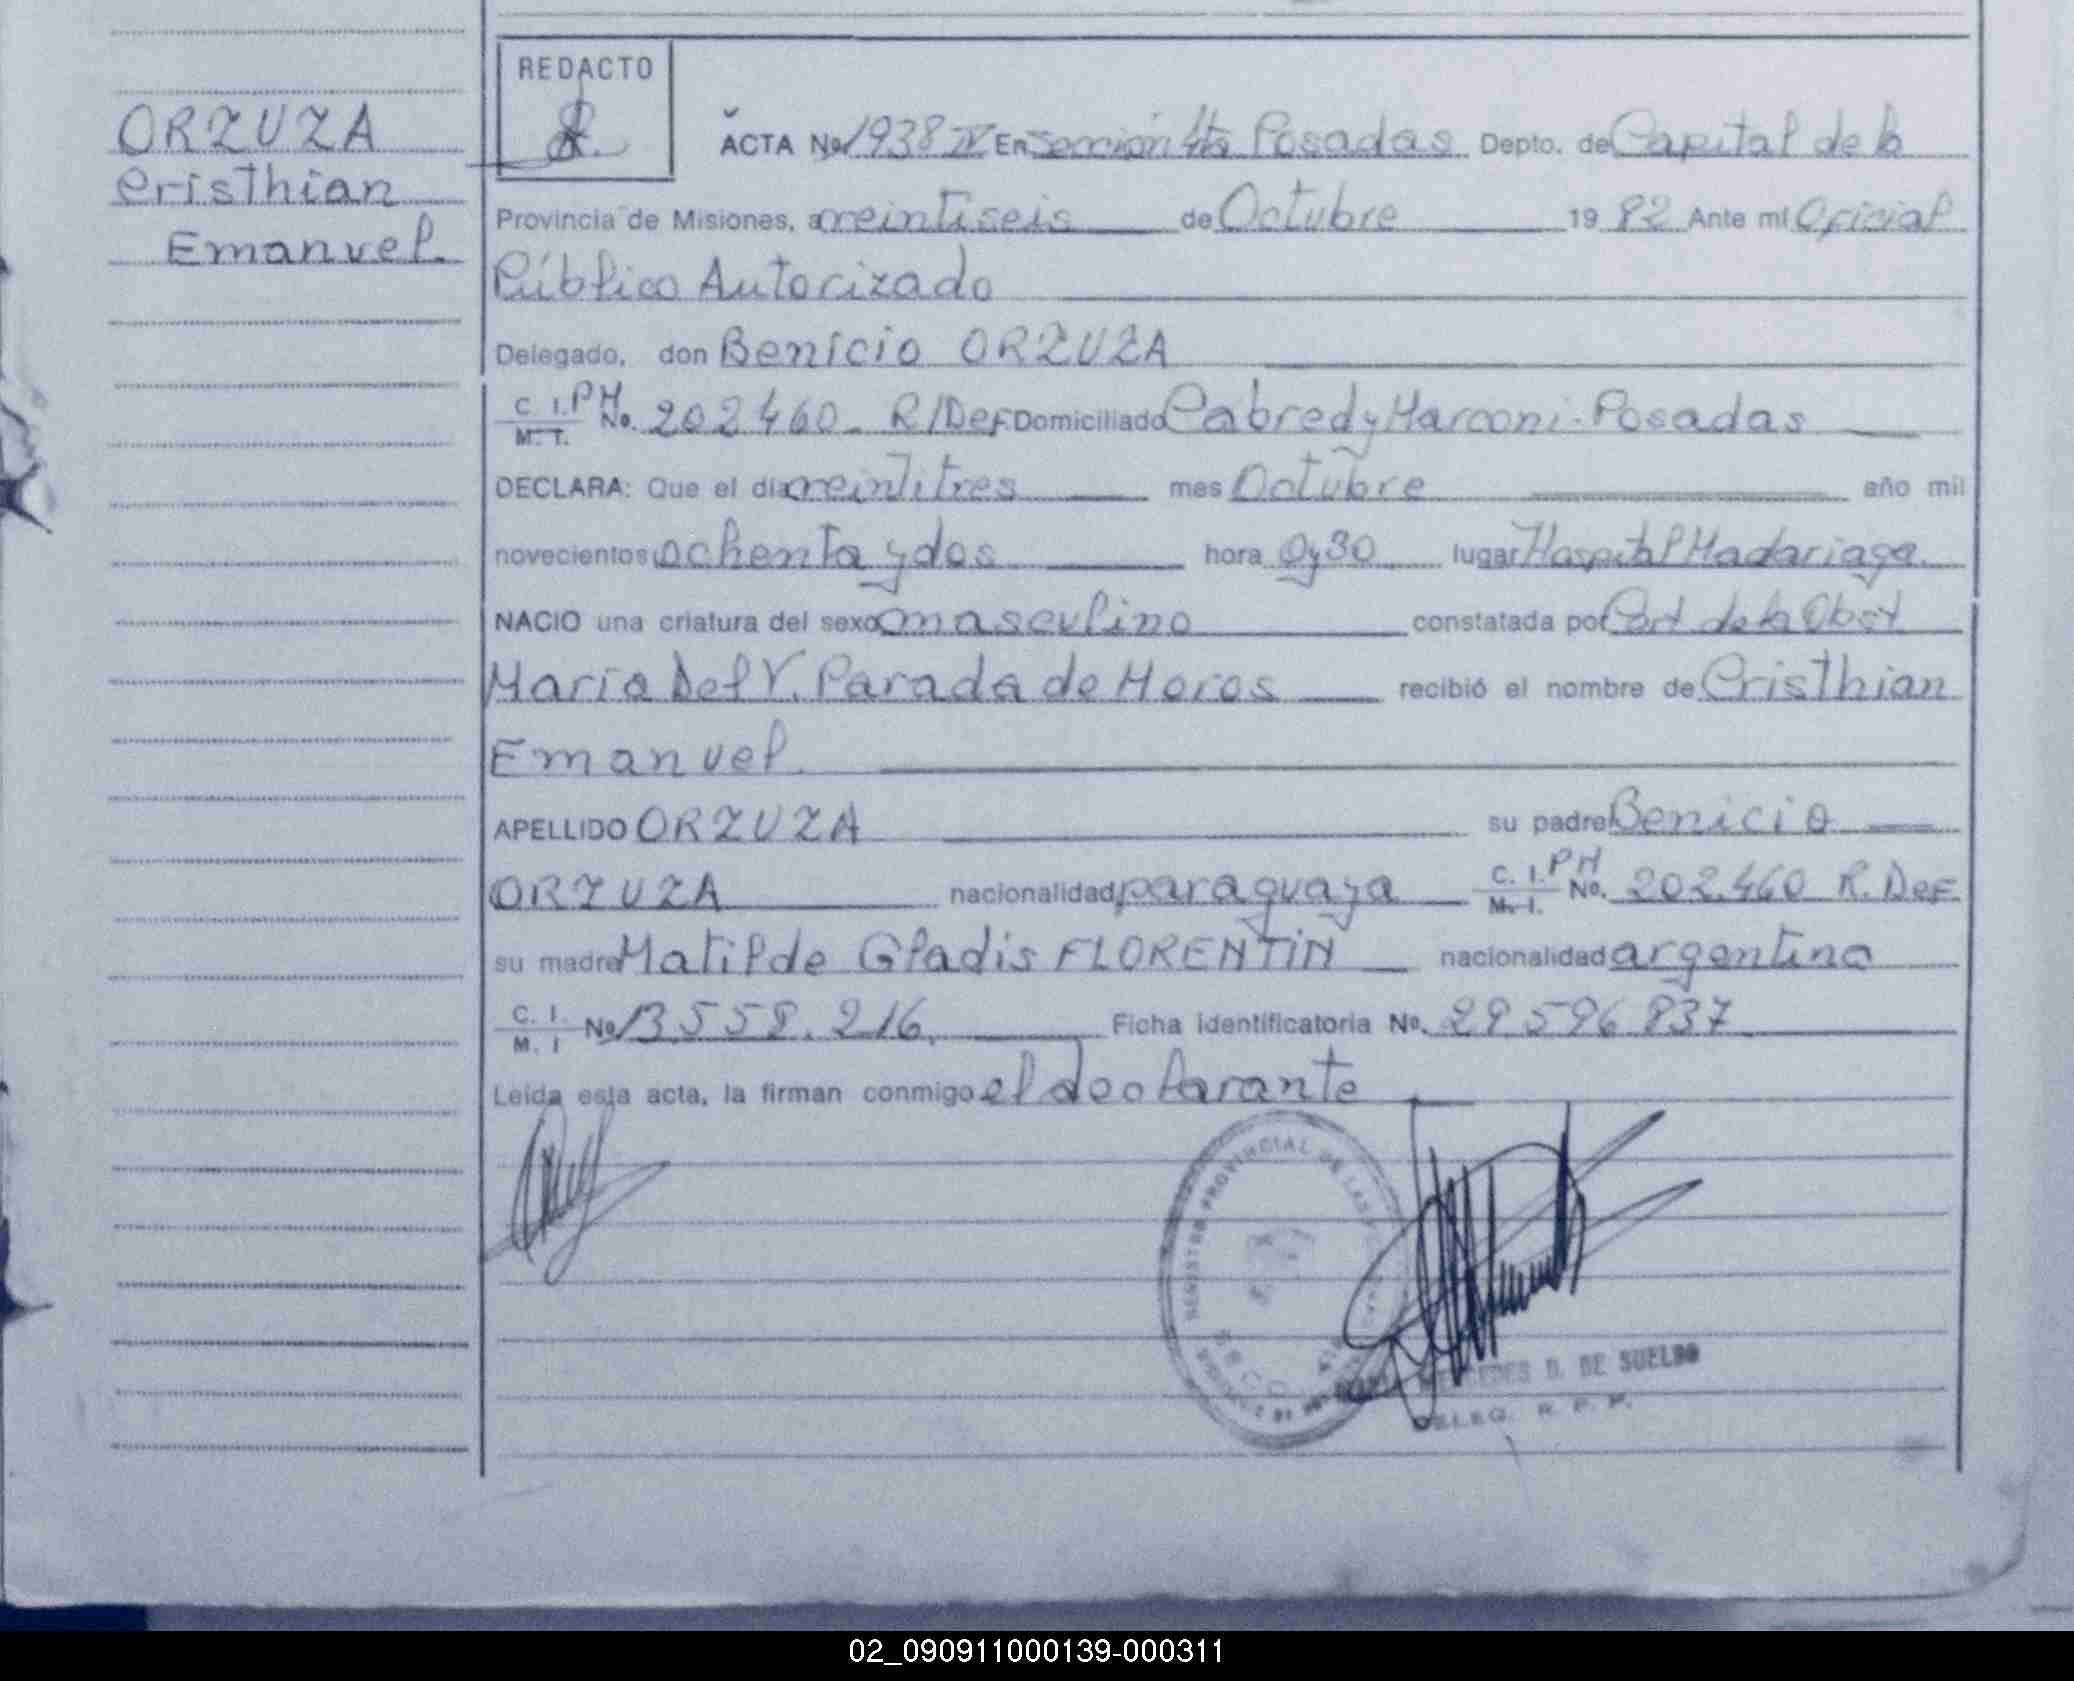 REDACTO
ORZUZA
Cristhian
Emanuel.
ACTA No 1938 IV En Sección 4ta Posadas Depto. de Capital de la
Provincia de Misiones, a veintiseis de Octubre 1982 Ante mi Oficial
Público Autorizado
Delegado, don Benicio ORZUZA
C. I. PH No. 202460. R/Def. Domiciliado Cabred y Marconi - Posadas
M. I.
DECLARA: Que el día veintitres mes Octubre año mil
novecientos ochenta y dos hora 0y30 lugar Hospital Madariaga.
NACIO una criatura del sexo masculino constatada por Cert de la Obst
Maria Del V. Parada de Moros recibió el nombre de Cristhian
Emanuel.
APELLIDO ORZUZA su padre Benicio
ORZUZA nacionalidad paraguaya C. I. PH No. 202.460 R. Def.
M. I.
su madre Matilde Gladis FLORENTIN nacionalidad argentina
C. I. No 13.558.216. Ficha identificatoria No. 29596837
M. I
Leída esta acta, la firman conmigo el declarante
REGISTRO PROVINCIAL DE LAS
DE SUELDO
DELEG. R. P. P.
02_090911000139-000311